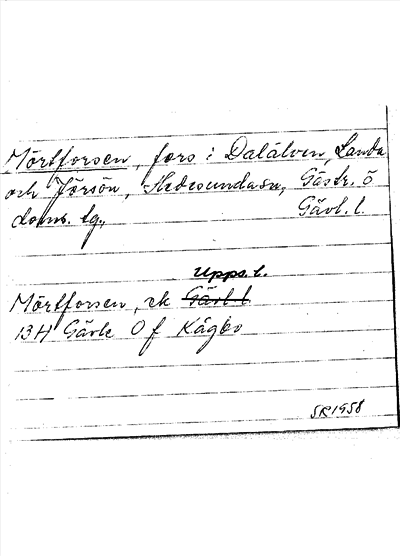 Mörtforsen, fors i Dalälven, Landa
och Färsön, Hedesundasn, Gästr. ö
doms. tg., Gävl. l.
Upps. l.
Mörtforsen, ek Gävl l
13H Gävle 0 f Kågbo
SR1958